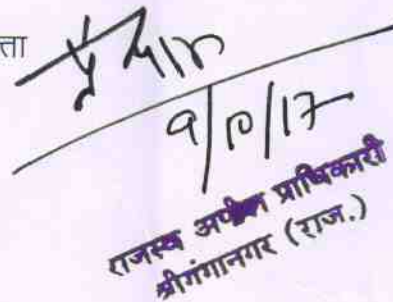 ता
9/10/17
राजस्व अपील प्राधिकारी
श्रीगंगानगर (राज.)